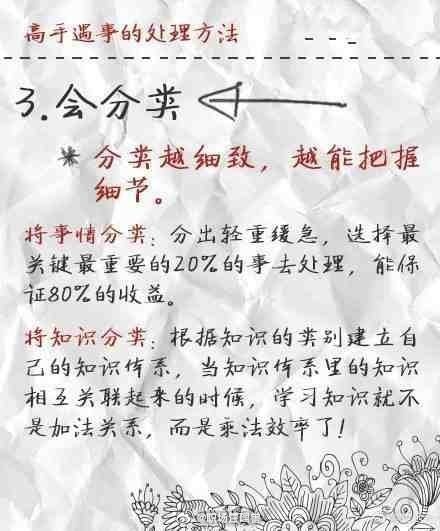 高手遇事的处理方法
3.会分类
* 分类越细致，越能把握
细节。
将事情分类：分出轻重缓急，选择最
关键最重要的20%的事去处理，能保
证80%的收益。
将知识分类：根据知识的类别建立自
己的知识体系，当知识体系里的知识
相互关联起来的时候，学习知识就不
是加法关系，而是乘法效率了！